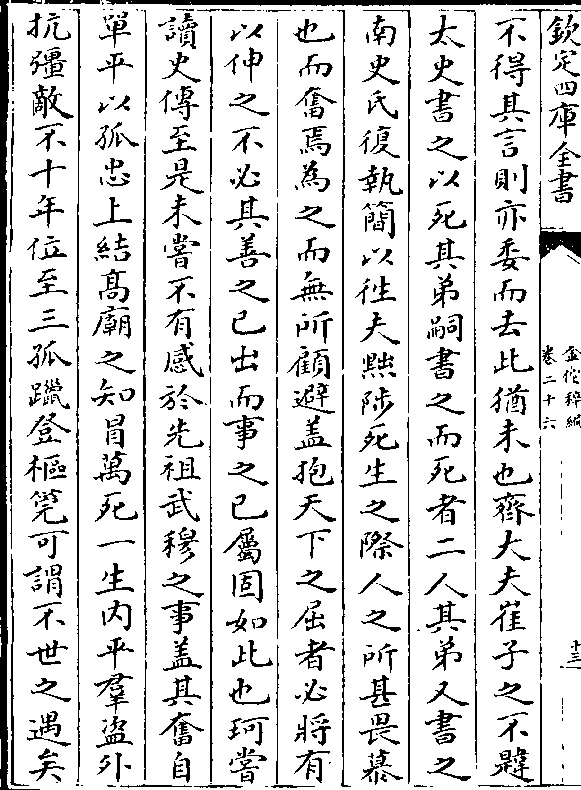 欽定四庫全書
金佗稡編
卷二十六
十三
不得其言則亦委而去此猶未也齊大夫崔子之不韙
太史書之以死其弟嗣書之而死者二人其弟又書之
南史氏復執簡以徃夫黜陟死生之際人之所甚畏慕
也而奮焉為之而無所顧避蓋抱天下之屈者必將有
以伸之不必其善之已出而事之已屬固如此也珂嘗
讀史傳至是未嘗不有感於先祖武穆之事蓋其奮自
單平以孤忠上結髙廟之知冐萬死一生内平羣盗外
抗彊敵不十年位至三孤躐登樞筦可謂不世之遇矣